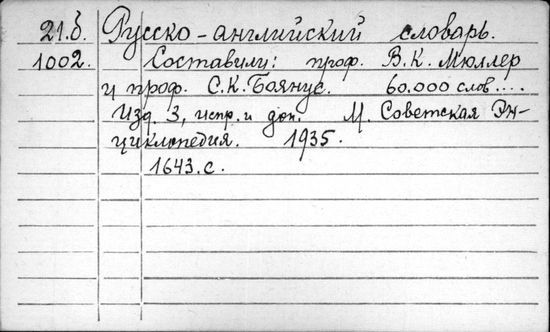 21.б. Русско-английский словарь.
1002. Составили: проф. В.К. Мюллер
и проф. С.К. Боянус. 60.000 слов....
Изд. 3, испр. и доп. М. Советская Эн-
циклопедия. 1935.
1643.с.